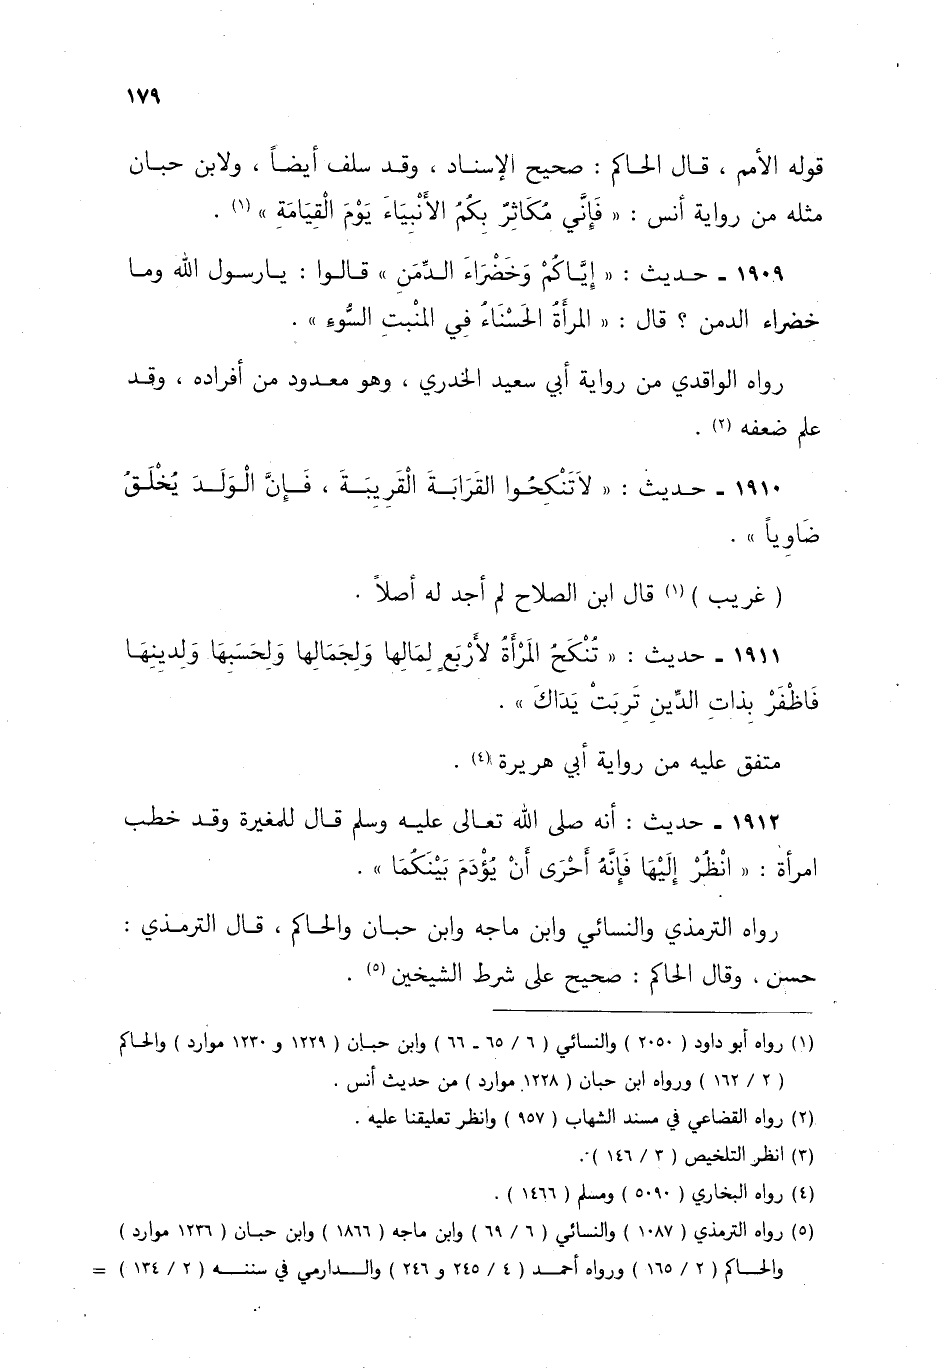 ١٧٩
قوله الأمم ، قال الحاكم : صحيح الإسناد ، وقد سلف أيضاً ، ولابن حبان
مثله من رواية أنس : « فَإِنَّي مُكَاثِرٌ بِكُمُ الأَنْبِيَاءَ يَوْمَ الْقِيَامَةِ » (١) .
١٩٠٩ ـ حديث : « إِيَّاكُمْ وَخَضْرَاءَ الدِّمَنِ » قالوا : يارسول الله وما
خضراء الدمن ؟ قال : « المرأَةُ الحَسْنَاءُ فِي المْنْبِتِ السُّوءِ » .
رواه الواقدي من رواية أبي سعيد الخدري ، وهو معدود من أفراده ، وقد
علم ضعفه (٢) .
١٩١٠ ـ حديث : « لاَتَنْكِحُوا القَرَابَةَ الْقَرِيبَةَ ، فَإِنَّ الْوَلَدَ يُخْلَقُ
ضَاوِياً » .
( غريب ) (١) قال ابن الصلاح لم أجد له أصلاً .
١٩١١ ـ حديث : « تُنْكَحُ المَرْأَةُ لأَرْبَعٍ لِمَالِها وَلِجَمَالِها وَلِحَسَبِهَا وَلِدينِهَا
فَاظْفَرْ بِذاتِ الدِّينِ تَرِبَتْ يَدَاكَ » .
متفق عليه من رواية أبي هريرة (٤) .
١٩١٢ ـ حديث : أنه صلى الله تعالى عليه وسلم قال للمغيرة وقد خطب
امرأة : « انْظُرْ إِلَيْهَا فَإِنَّهُ أَحْرَى أَنْ يُؤْدَمَ بَيْنَكُمَا » .
رواه الترمذي والنسائي وابن ماجه وابن حبان والحاكم ، قال الترمذي :
حسن ، وقال الحاكم : صحيح على شرط الشيخين (٥) .
(١) رواه أبو داود ( ٢٠٥٠ ) والنسائي ( ٦ / ٦٥ ـ ٦٦ ) وابن حبان ( ١٢٢٩ و ١٢٣٠ موارد ) والحاكم
( ٢ / ١٦٢ ) ورواه ابن حبان ( ١٢٢٨ موارد ) من حديث أنس .
(٢) رواه القضاعي في مسند الشهاب ( ٩٥٧ ) وانظر تعليقنا عليه .
(٣) انظر التلخيص ( ٣ / ١٤٦ ) .
(٤) رواه البخاري ( ٥٠٩٠ ) ومسلم ( ١٤٦٦ ) .
(٥) رواه الترمذي ( ١٠٨٧ ) والنسائي ( ٦ / ٦٩ ) وابن ماجه ( ١٨٦٦ ) وابن حبان ( ١٢٣٦ موارد )
والحاكم ( ٢ / ١٦٥ ) ورواه أحمد ( ٤ / ٢٤٥ و ٢٤٦ ) والدارمي في سننه ( ٢ / ١٣٤ ) =